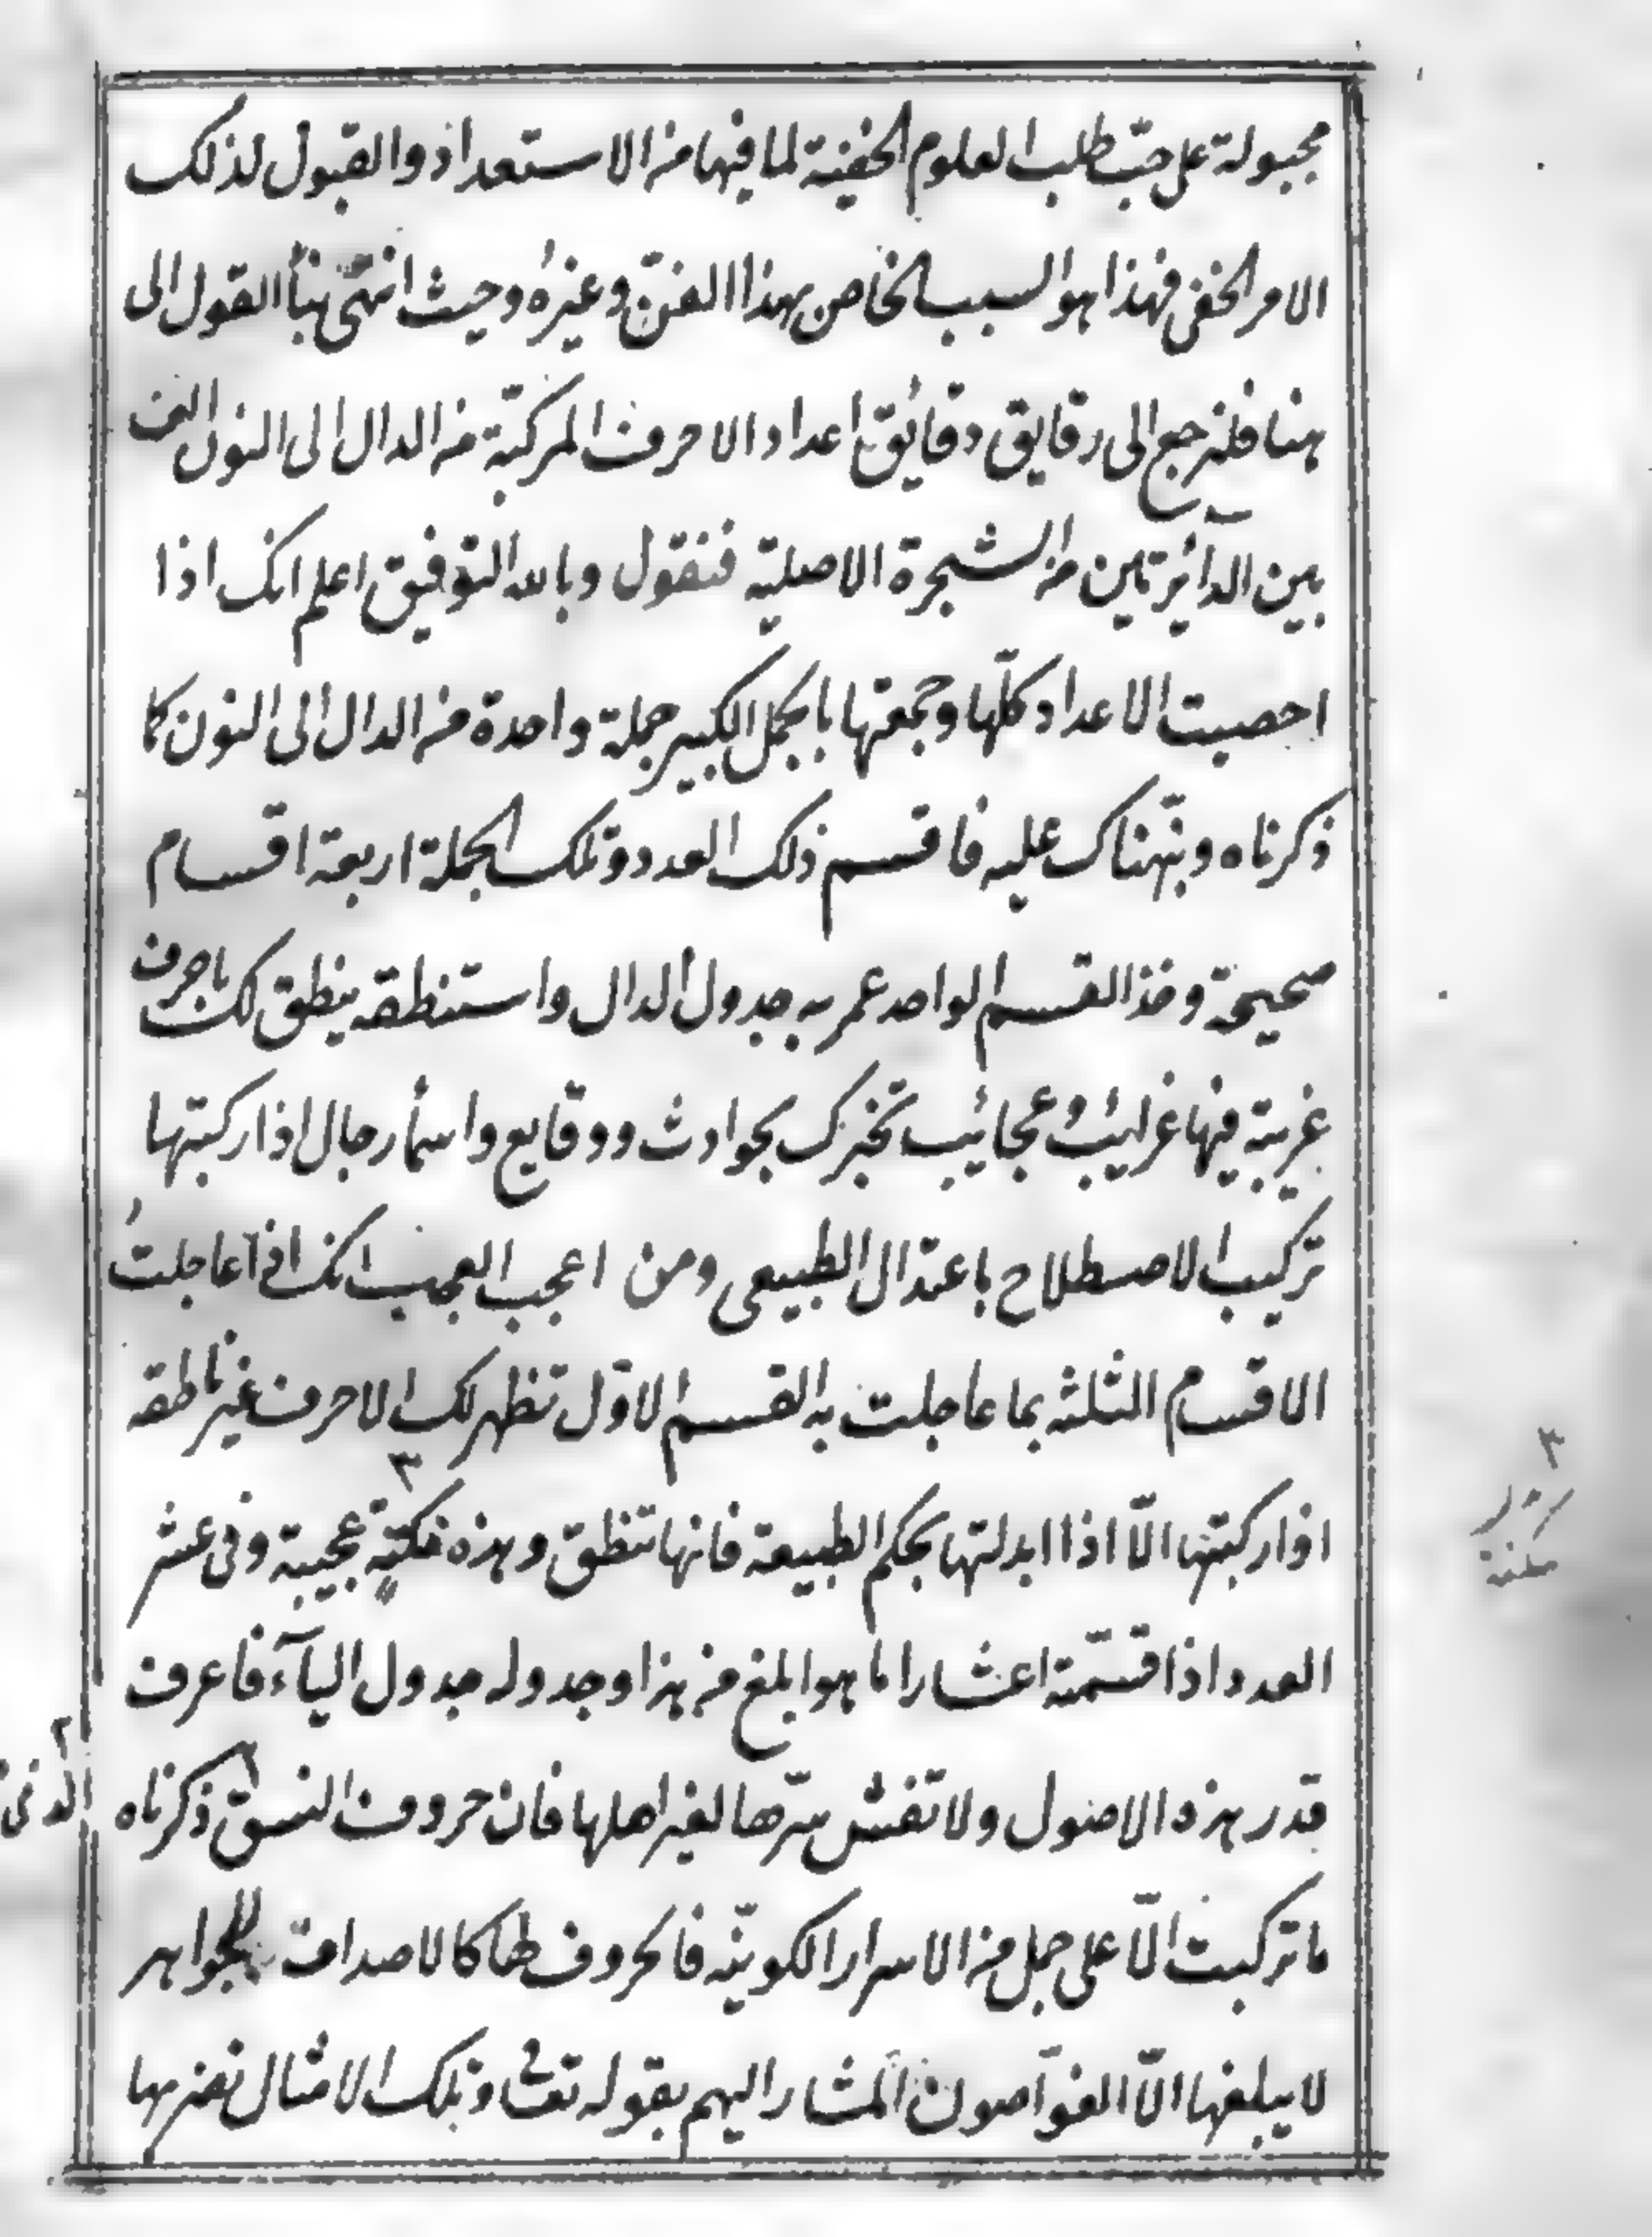 مجبولة على حبّ طلب العلوم الخفية لما فيها من الاستعداد والقبول لذلك
الامر الخفى فهذا هو السبب الخاص بهذا الفنّ وغيره وحيث انتهى بنا القول الى
هنا فلنرجع الى رقايق دقائق اعداد الاحرف المركبّة من الدال الى النون التى
بين الدآئرتين من الشجرة الاصلية فنقول وبالله التوفيق اعلم انك اذا
احصيت الاعداد كلّها وجمعتها بالجمل الكبير جملة واحدة من الدال الى النون كما
ذكرناه ونبّهناك عليه فاقسم ذلك العدد وتلك الجملة اربعة اقسام
صحيحة وخذ القسم الواحد عمر به جدول الدال واستنطقه ينطق لك باحرف
غريبة فيها غرائب وعجائب تخبرك بحوادث ووقايع واسمآء رجال اذا ركبتها
تركيب الاصطلاح باعتدال الطبيعى ومن اعجب العجب انك اذا عاجلت
الاقسام الثلثه بما عاجلت به القسم الاوّل تظهر لك الاحرف غير ناطقه
اذا ركبتها الّا اذا ابدلتها بحكم الطبيعة فانها تنطق وهذه نكتة عجيبة وفى عشر
العدد اذا قسّمته اعشارا ما هو ابلغ من هذا وجدوله جدول اليآء فاعرف
قدر هذه الاصول ولا تفش سرّها لغير اهلها فان حروف النسق ذكرناه
الذى
ما تركبت الّا على جمل من الاسرار الكونيّه فالحروف لها كالاصداف للجواهر
لا يبلغها الّا الغوّاصون المشار اليهم بقوله تعالى وتلك الامثال نضربها